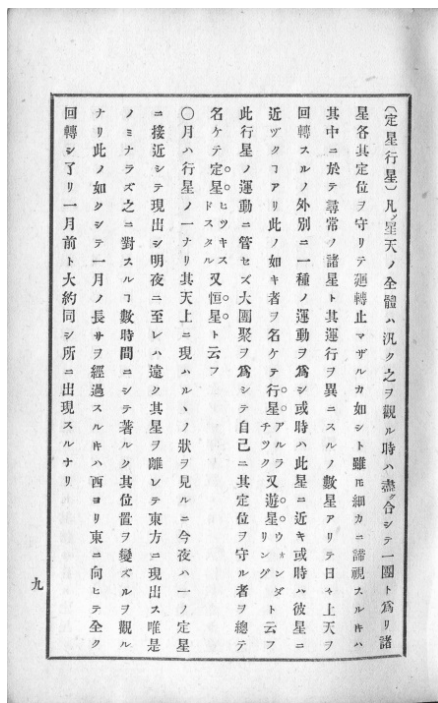 〔定星行星〕凡ソ星天ノ全體ハ汎ク之ヲ觀ル時ハ盡ク合シテ一團ト爲リ諸
星各其定位ヲ守リテ廻轉止マザルカ如シト雖𪜈細カニ諦視スルキハ
其中ニ於テ尋常ノ諸星ト其運行ヲ異ニスルノ數星アリテ日々上天ヲ
回轉スルノ外別ニ一種ノ運動ヲ爲シ或時ハ此星ニ近キ或時ハ彼星ニ
近ヅクヿアリ此ノ如キ者ヲ名ケテ行星アルラチック又遊星ウォンダリングト云フ
此行星ノ運動ニ管セズ大團聚ヲ爲シテ自己ニ其定位ヲ守ル者ヲ總テ
名ケテ定星ヒッキスドスタル又恒星ト云フ
〇月ハ行星ノ一ナリ其天上ニ現ハルヽノ狀ヲ見ルニ今夜ハ一ノ定星
ニ接近シテ現出シ明夜ニ至レハ遠ク其星ヲ離レテ東方ニ現出ス唯是
ノミナラズ之ニ對スルヿ數時間ニシテ著ルク其位置ヲ變ズルヲ觀ル
ナリ此ノ如クシテ一月ノ長サヲ經過スルキハ西ヨリ東ニ向ヒテ全ク
回轉シ了リ一月前ト大約同シ所ニ出現スルナリ
九